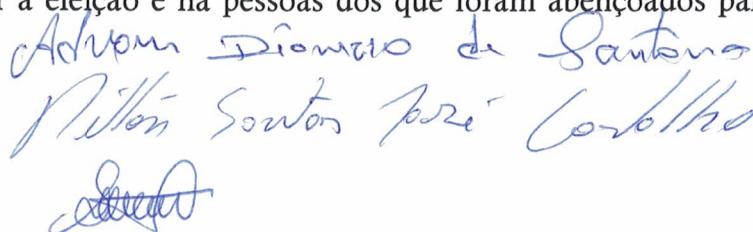 a eleição e na pessoas dos que foram abençoados pa
Dionizio de Santana
Nilton Santos José Carvalho